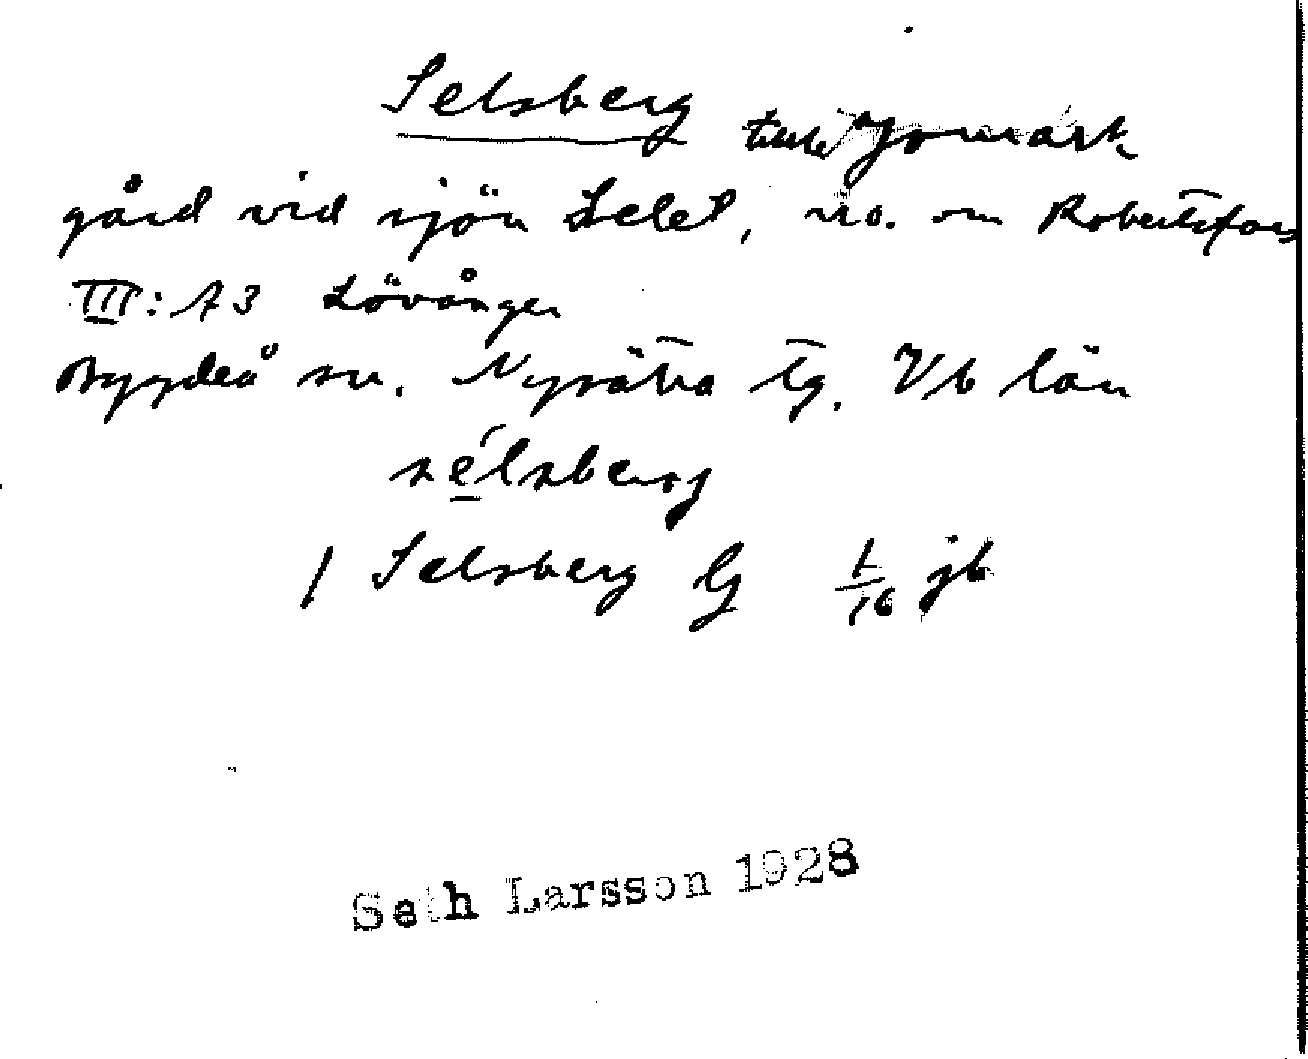 Selsberg Jomark
gård vid sjön Selet, no. om Robertsfors
III: A3 Lövånger
Bygdeå sn. Nysätra tg. Vb län
sélsberg
1 Selsberg lg 1/16 jb
Seth Larsson 1928